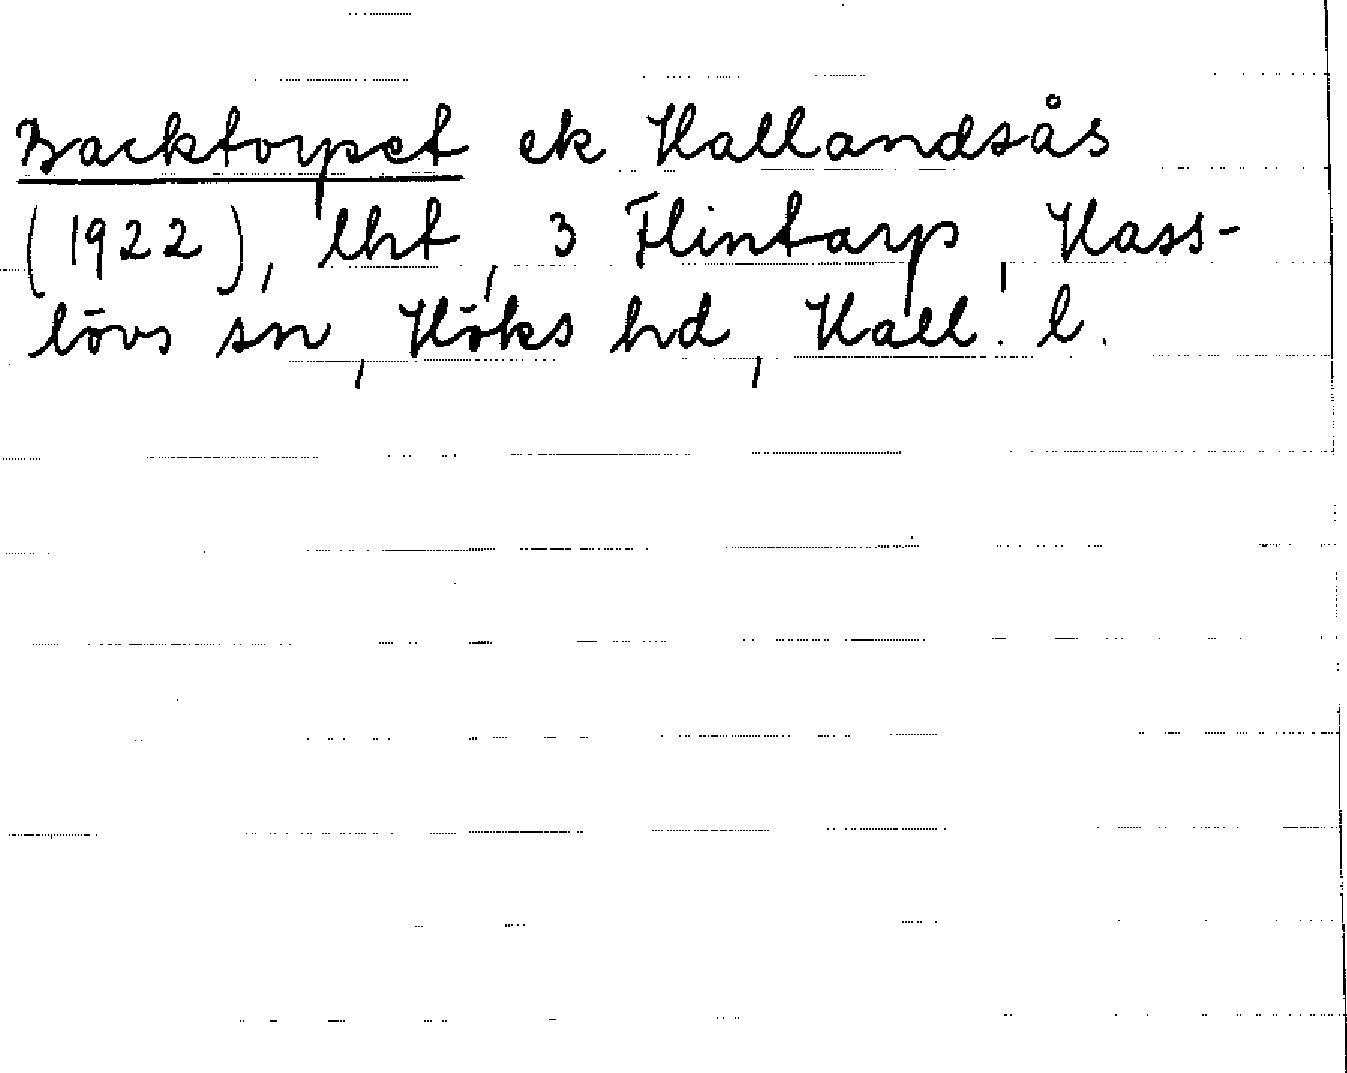 Backtorpet ek Hallandsås
(1922), lht, 3 Flintarp, Hass-
lövs sn, Höks hd, Hall. l.